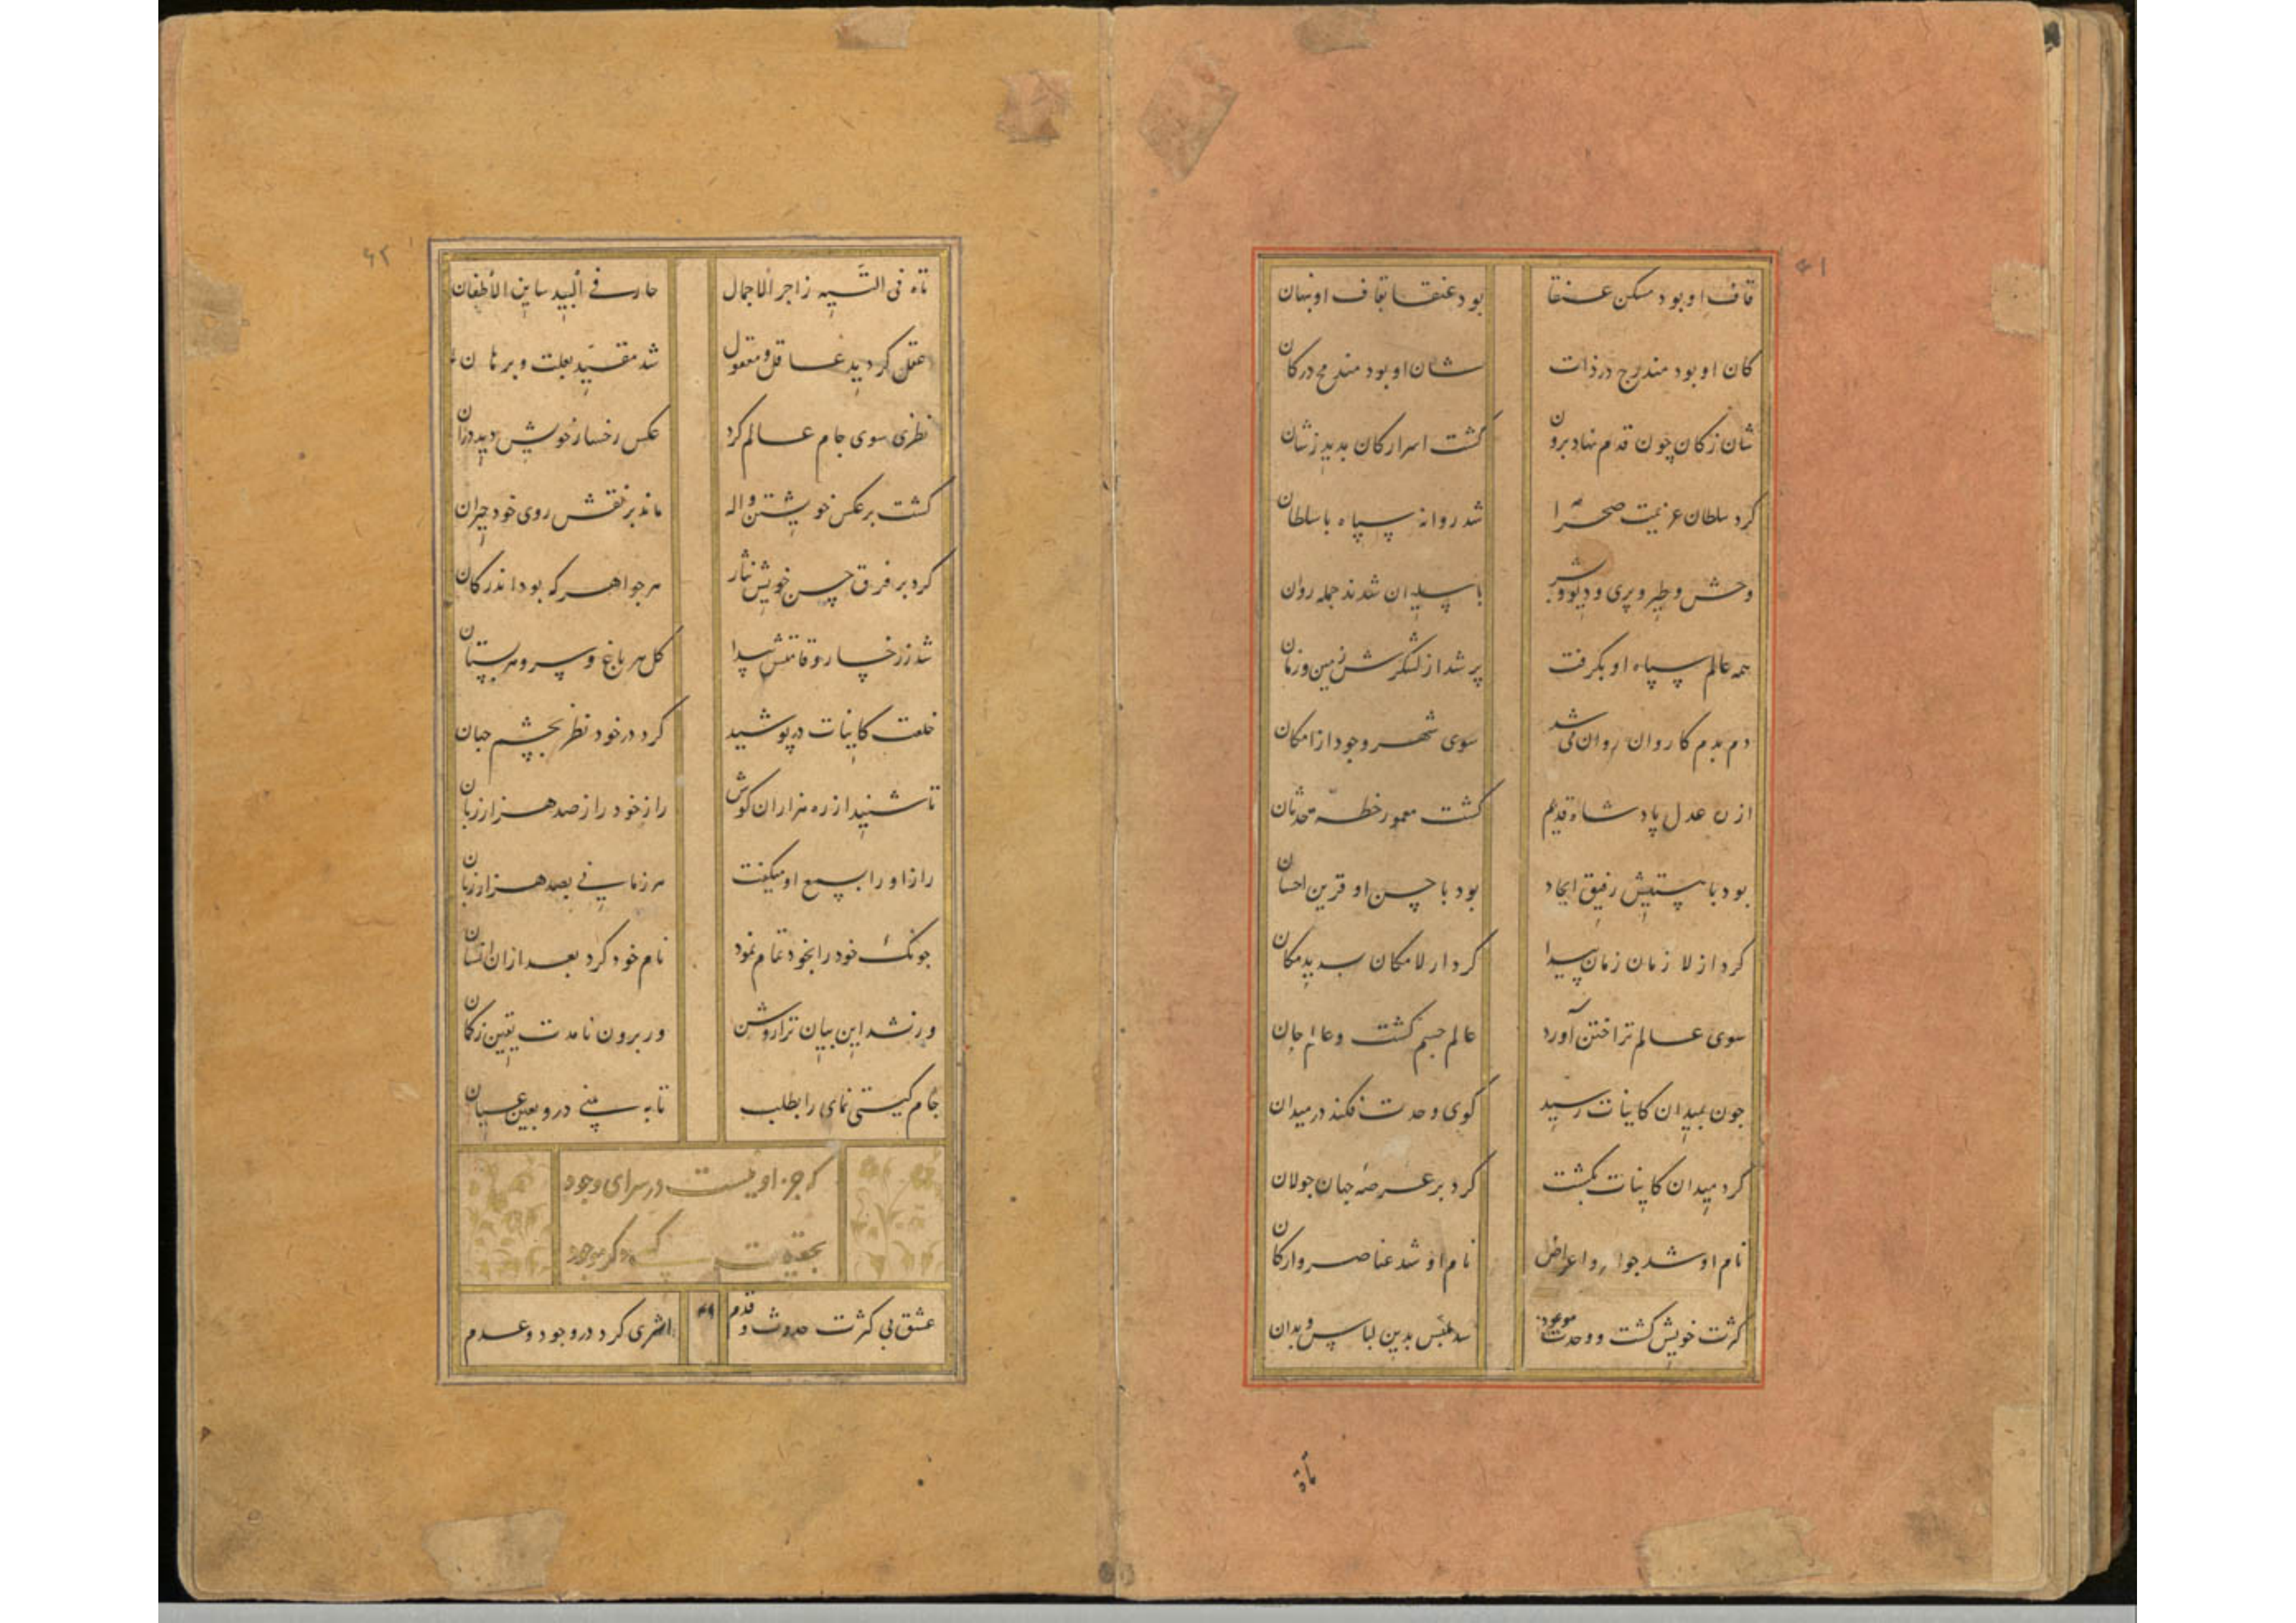 ۴۱
قاف او بود مسکن عنقا بود عنقا بقاف او نهان
کان او بود مندرج در ذات شان او بود مندرج در کان
شان ز کان چون قدم نهاد برون کشت اسرار کان بدید زشان
کرد سلطان عزیمت صحرا شد روانه سپاه با سلطان
وحش و طیر و پری و دیو و بشر با سلیمان شدند جمله روان
همه عالم سپاه او بکرفت پر شد از لشکرش زمین و زمان
دم بدم کاروان روان می شد سوی شهر وجود از امکان
از عدل پادشاه قدیم کشت معمور خطه حدثان
بود با رفیق ایجاد بود با حسن او قرین احسان
کرد از لا زمان زمان پیدا کرد از لامکان بدید مکان
سوی عالم تراختن آورد عالم جسم کشت و عالم جان
جون بمیدان کاینات رسید کوی وحدت فکند در میدان
کرد میدان کاینات بکشت کرد بر عرصه جهان جولان
نام او شد جواهر و اعراض نام او شد عناصر و ارکان
کثرت خویش کشت و وحدت بدین لباس و بدان
تاه
۴۲
تاه فی التیه زاجر الاجمال حار فی البید ساین الاظعان
عقل کردید عاقل و معقول شد مقید بعلت و برهان
نظری سوی جام عالم کرد عکس رخسار خویش دید دران
کشت بر عکس خویشتن واله ماند بر نقش روی خود حیران
کرد بر فرق حسن خویش نثار هر جواهر که بود اندر کان
شد ز رخسار و قامتش پیدا کل هر باغ و سرو هر بستان
خلعت کاینات در پوشید کرد در خود نظر بچشم جهان
تا شنید از ره هزاران کوش راز خود را ز صد هزار زبان
راز او را بسمع او میکفت هر زمانی بصد هزار زبان
جونک خود را بخود تمام نمود نام خود کرد بعد ازان انسان
ور نشد این بیان ترا روشن ور برون نامدت یقین ز کمان
جام کیتی نمای را بطلب تا به بینی درو بعین عیان
که جز او نیست در سرای وجود
بحقیقت کسی دکر موجود
عشق بی کثرت حدوث و قدم اثری کرد در وجود و عدم